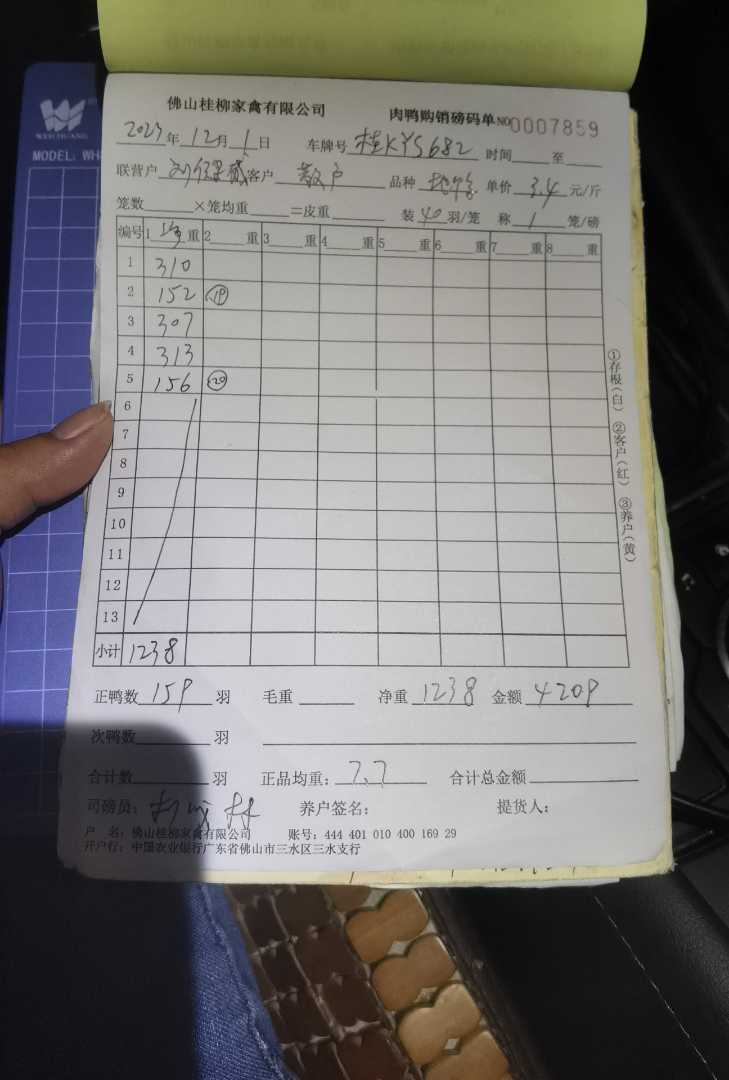 WEICHUANG
MODEL: WH
佛山桂柳家禽有限公司 肉鸭购销磅码单 NO 0007859
2023年12月1日 车牌号 桂KY5682 时间 至
联营户 客户 散户 品种 单价 3.4 元/斤
笼数 ×笼均重 =皮重 装 40 羽/笼 称 1 笼/磅
编号 1 重 2 重 3 重 4 重 5 重 6 重 7 重 8 重
1 310
2 152 ⑲
3 307
4 313
5 156 ⑳
6
7
8
9
10
11
12
13
小计 1238
正鸭数 159 羽 毛重 净重 1238 金额 4209
次鸭数 羽
合计数 羽 正品均重: 7.7 合计总金额
司磅员: 养户签名: 提货人:
户 名: 佛山桂柳家禽有限公司 账号: 444 401 010 400 169 29
开户行: 中国农业银行广东省佛山市三水区三水支行
①存根(白) ②客户(红) ③养户(黄)